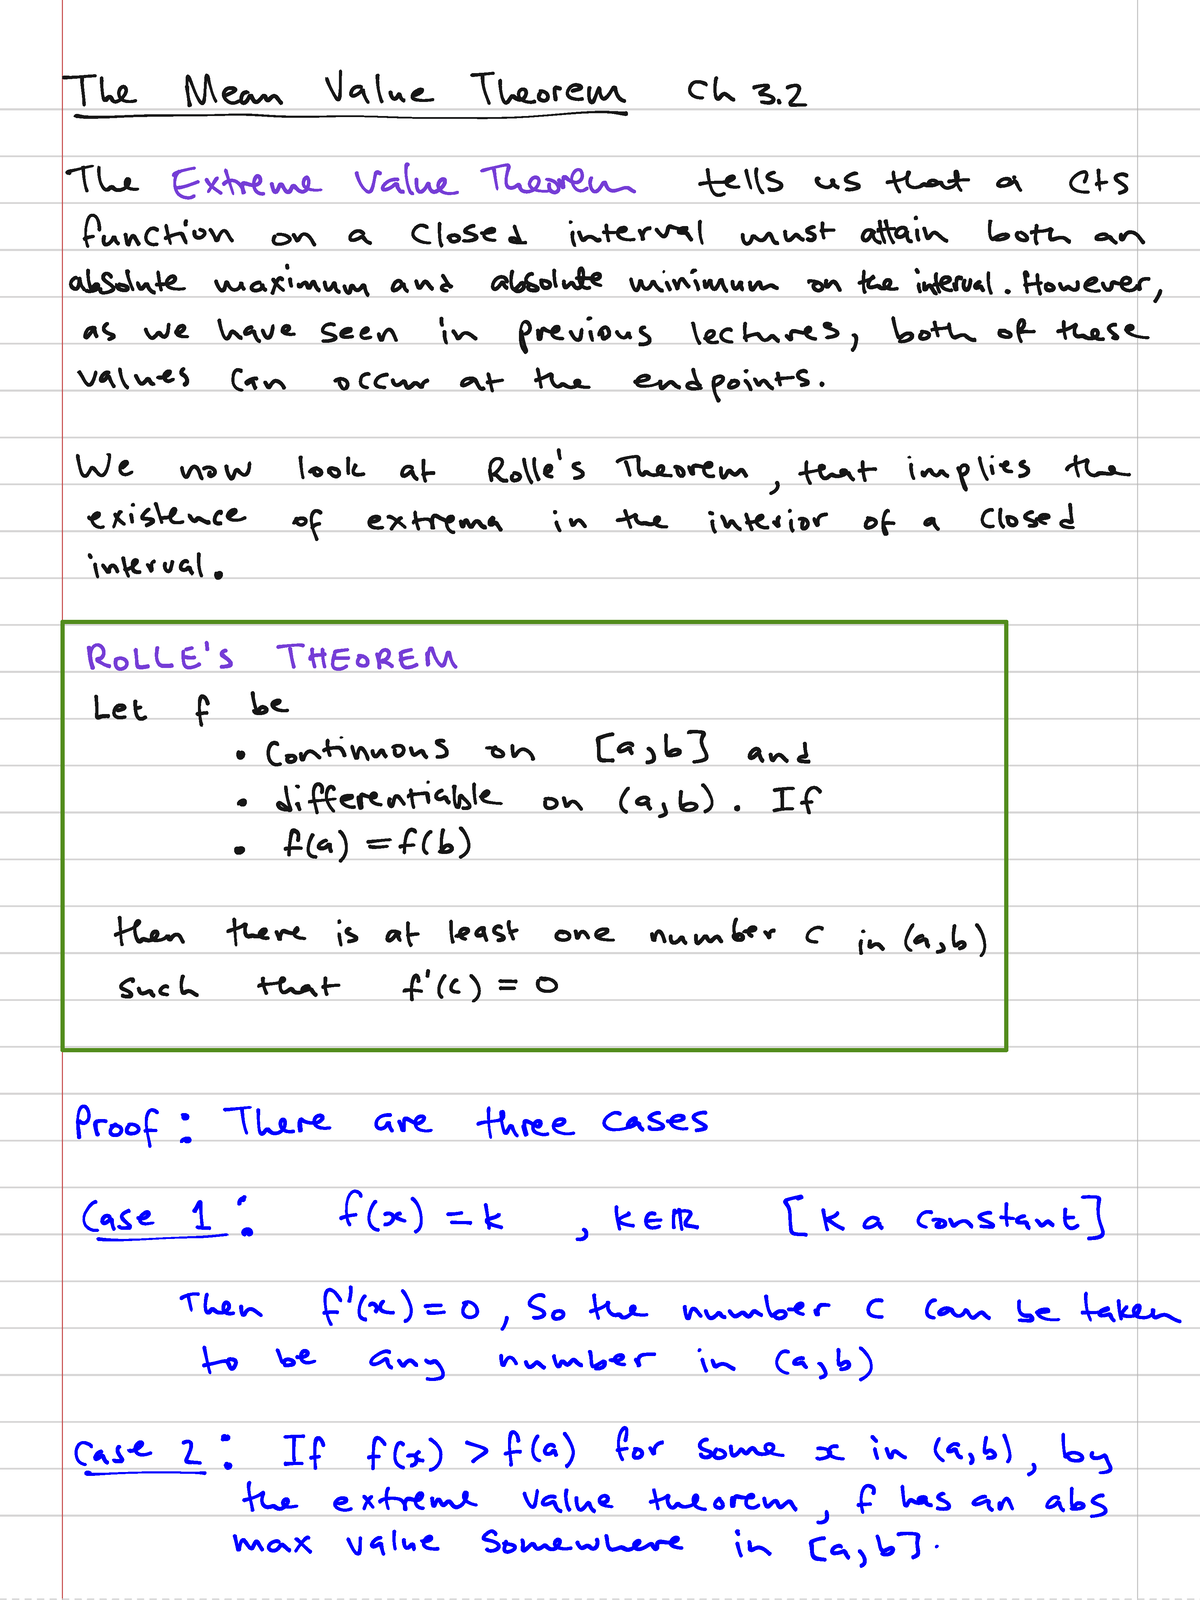 The Mean Value Theorem Ch 3.2
The Extreme Value Theorem tells us that a cts
function on a closed interval must attain both an
absolute maximum and absolute minimum on the interval. However,
as we have seen in previous lectures, both of these
values can occur at the endpoints.
We now look at Rolle's Theorem, that implies the
existence of extrema in the interior of a closed
interval.
ROLLE'S THEOREM
Let f be
• Continuous on [a,b] and
• differentiable on (a,b). If
• f(a) = f(b)
then there is at least one number c in (a,b)
such that f'(c) = 0
Proof: There are three cases
Case 1: f(x) = k , k∈ℝ [k a constant]
Then f'(x) = 0, So the number c can be taken
to be any number in (a,b)
Case 2: If f(x) > f(a) for some x in (a,b), by
the extreme value theorem, f has an abs
max value somewhere in [a,b].